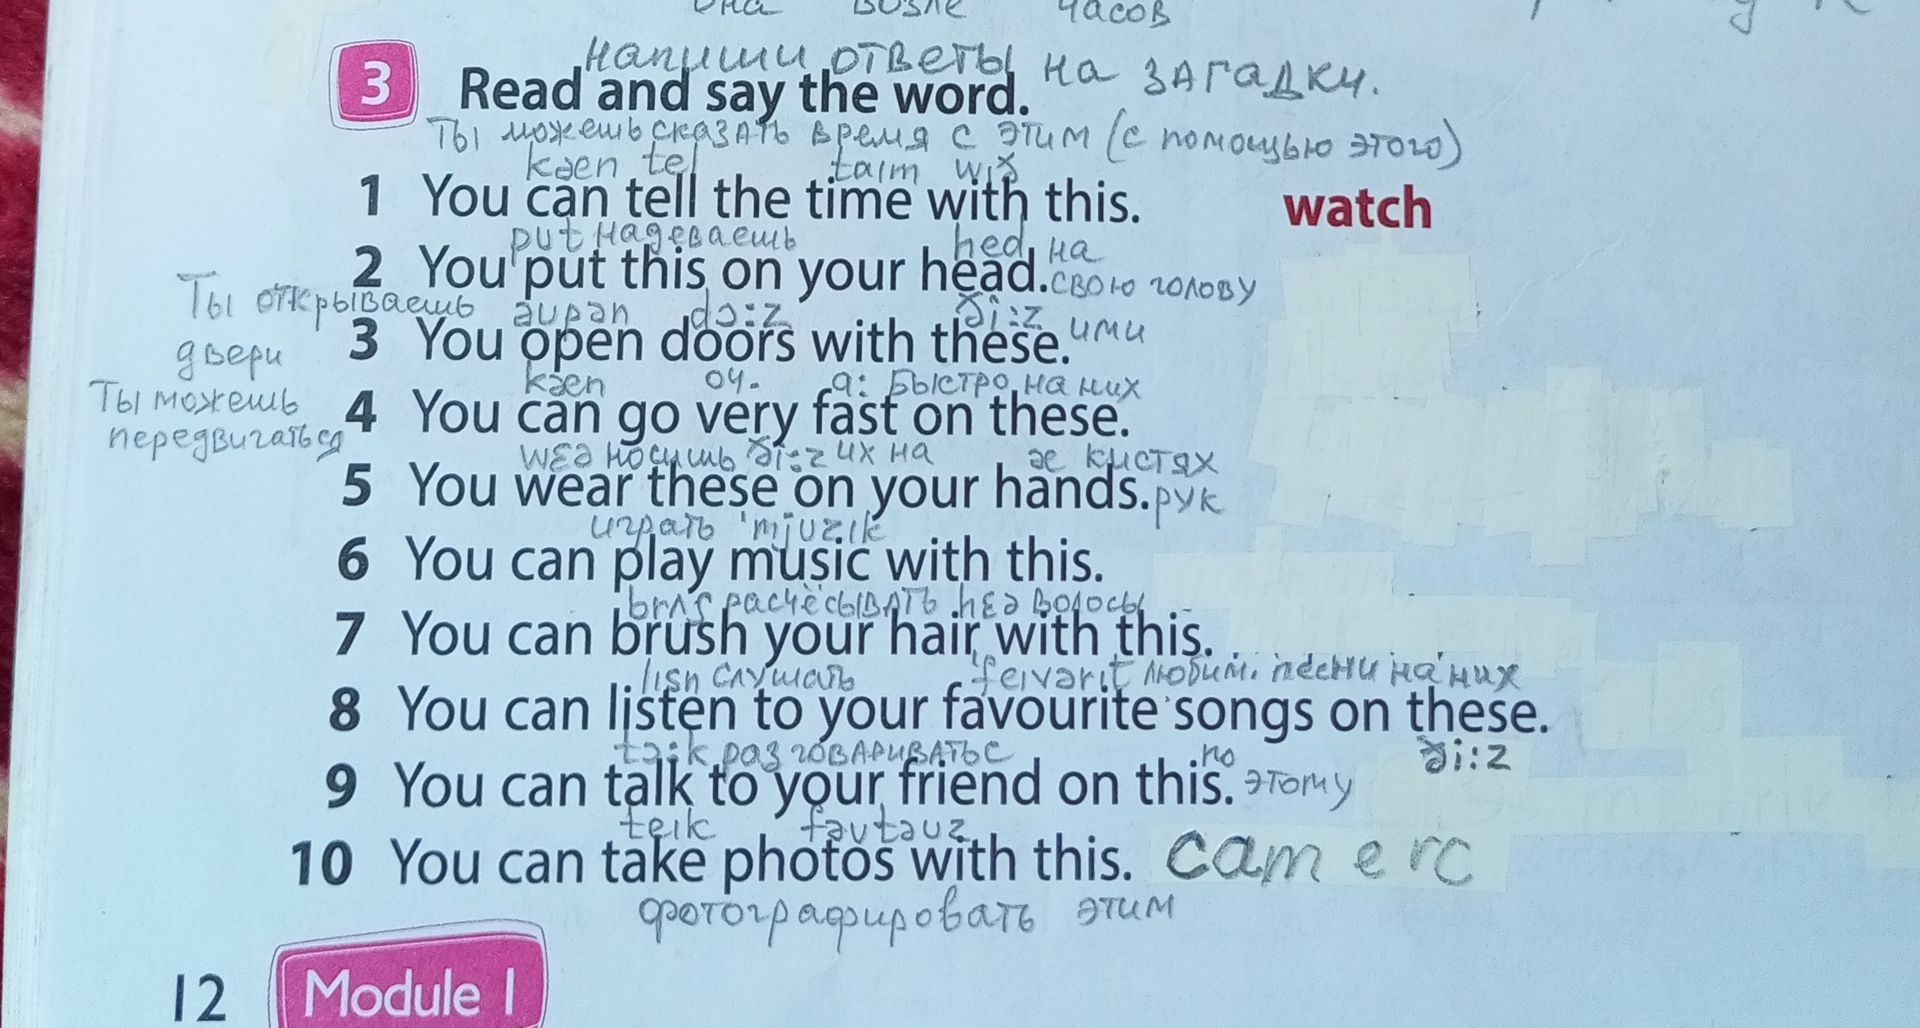 она возле часов
напиши ответы на загадки.
3 Read and say the word.
Ты можешь сказать время с этим (с помощью этого)
kæn tel taım wıð
1 You can tell the time with this. watch
put надеваешь hed на
2 You put this on your head. свою голову
Ты открываешь əupən dɔ:z ði:z ими
3 You open doors with these.
двери
kæn оч. a: быстро на них
Ты можешь
4 You can go very fast on these.
передвигаться
wɛə носишь ði:z их на æ кистях
5 You wear these on your hands. рук
играть 'mjuzık
6 You can play music with this.
brʌʃ расчёсывать hɛə волосы
7 You can brush your hair with this.
lısn слушать 'feıvərıt любим. песни на них
8 You can listen to your favourite songs on these.
tɔ:k разговариватьс по ði:z
9 You can talk to your friend on this. этому
teık fəutəuz
10 You can take photos with this. camerc
фотографировать этим
12 Module 1